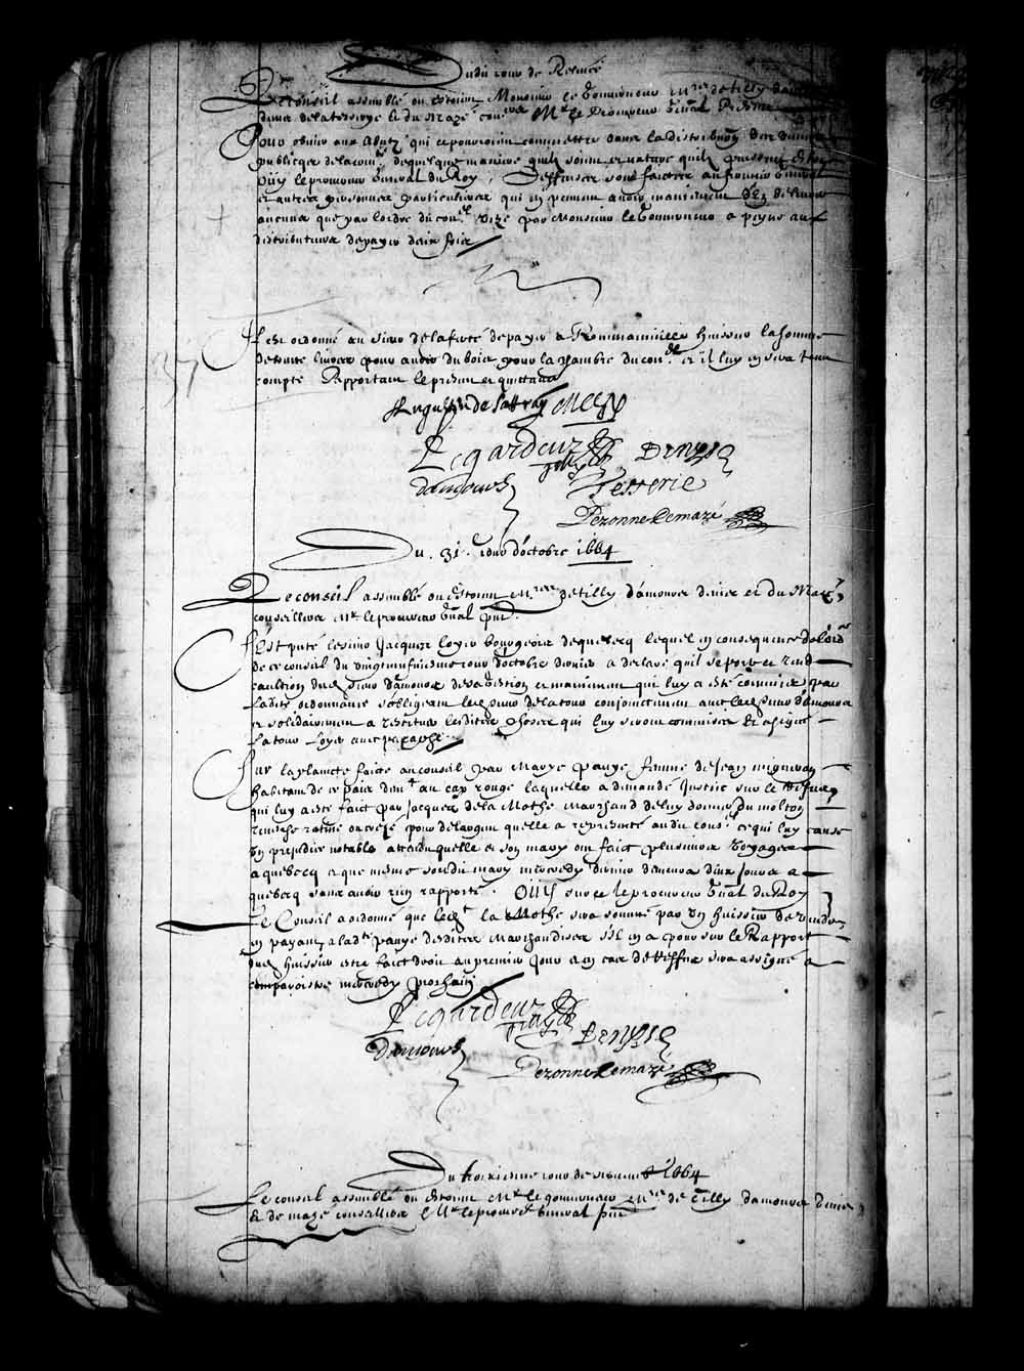 Dudit jour de Relevée
Le Conseil assemblé ou estoient Monsieur le Gouverneur Mrs de Tilly
denis de la tesserye & du Mazé coners Mr le Procureur Gñal
Pour obvier aux abuz qui ce pourroient commettre dans la distribuõn des deniers
publicqs de la com de quelque maniere quilz soient et nature quilz puissent estre
Ouy le procureur general du Roy, Deffenses sont faictes au fermier general
et autres personnes particulieres qui en peuvent avoir maniement den delivrer
aucuns que par lordre du conel vizé par Monsieur le Gouverneur a peyne aux
distributeurs de payer deux fois
Il est ordonné au sieur de la ferté de payer a huissier la somme
de trente livres pour avoir du bois pour la chambre du conel et il luy en sera tenu
compte Rapportant le present et quittance
Augustin de Saffray Mezy
Legardeur Tilly Denys
damours Tesserie
Pezonne Demazé
Du 31 jour d'octobre 1664
Le conseil assemblé ou Estoient Mrs de Tilly damours denis et du Mazé
conseillers Mr le procureur Gñal pñt
S'est pnté le sieur Jacques Loyer bourgeois de quebecq lequel en consequence de lordre
de ce conseil du vingtneufviesme jour d'octobre dernier a declaré quil se porte et rend
caultion dud sieur damours de sa gestion et maniement qui luy a esté commise par
ladite ordonnance s'obligeant led sieur de la tour conjoinctement avec led sieur damours
et solidairement a restituer lesdites choses qui luy seront commises & a signé
Latour Loyer avec paraphe
Sur la plaincte faicte au conseil par Marye pauye femme de Jean migneron
habitant de ce pais dent au cap rouge laquelle a demandé Justice sur le reffus
qui luy a esté faict par Jacques de la Mothe marchand de luy donner du molton
revesche ratine ou crezé pour de largent quelle a representé audit consl ce qui luy cause
un prejudice notable attendu quelle et son mary ont faict plusieurs voyages
a quebecq et que mesme sondit mary mercredy dernier demeura deux jours a
quebecq sans avoir rien rapporté. Ouy sur ce le procureur Gñal du Roy
Le Conseil a ordonné que led la Mothe sera sommé par un huissier de vendre
en payant a lade pauye desdites marchandises s'il en a pour sur le Rapport
dud huissier estre faict droit au premier jour et en cas de reffus sera assigné a
comparoistre mercredy prochain
Legardeur Tilly Denys
damours
Pezonne Demazé
Du troisiesme jour de novembre 1664
Le conseil assemblé ou Estoient Mr le gouverneur Mrs de Tilly damours denis
& de mazé conseillers & Mr le procur general pñt